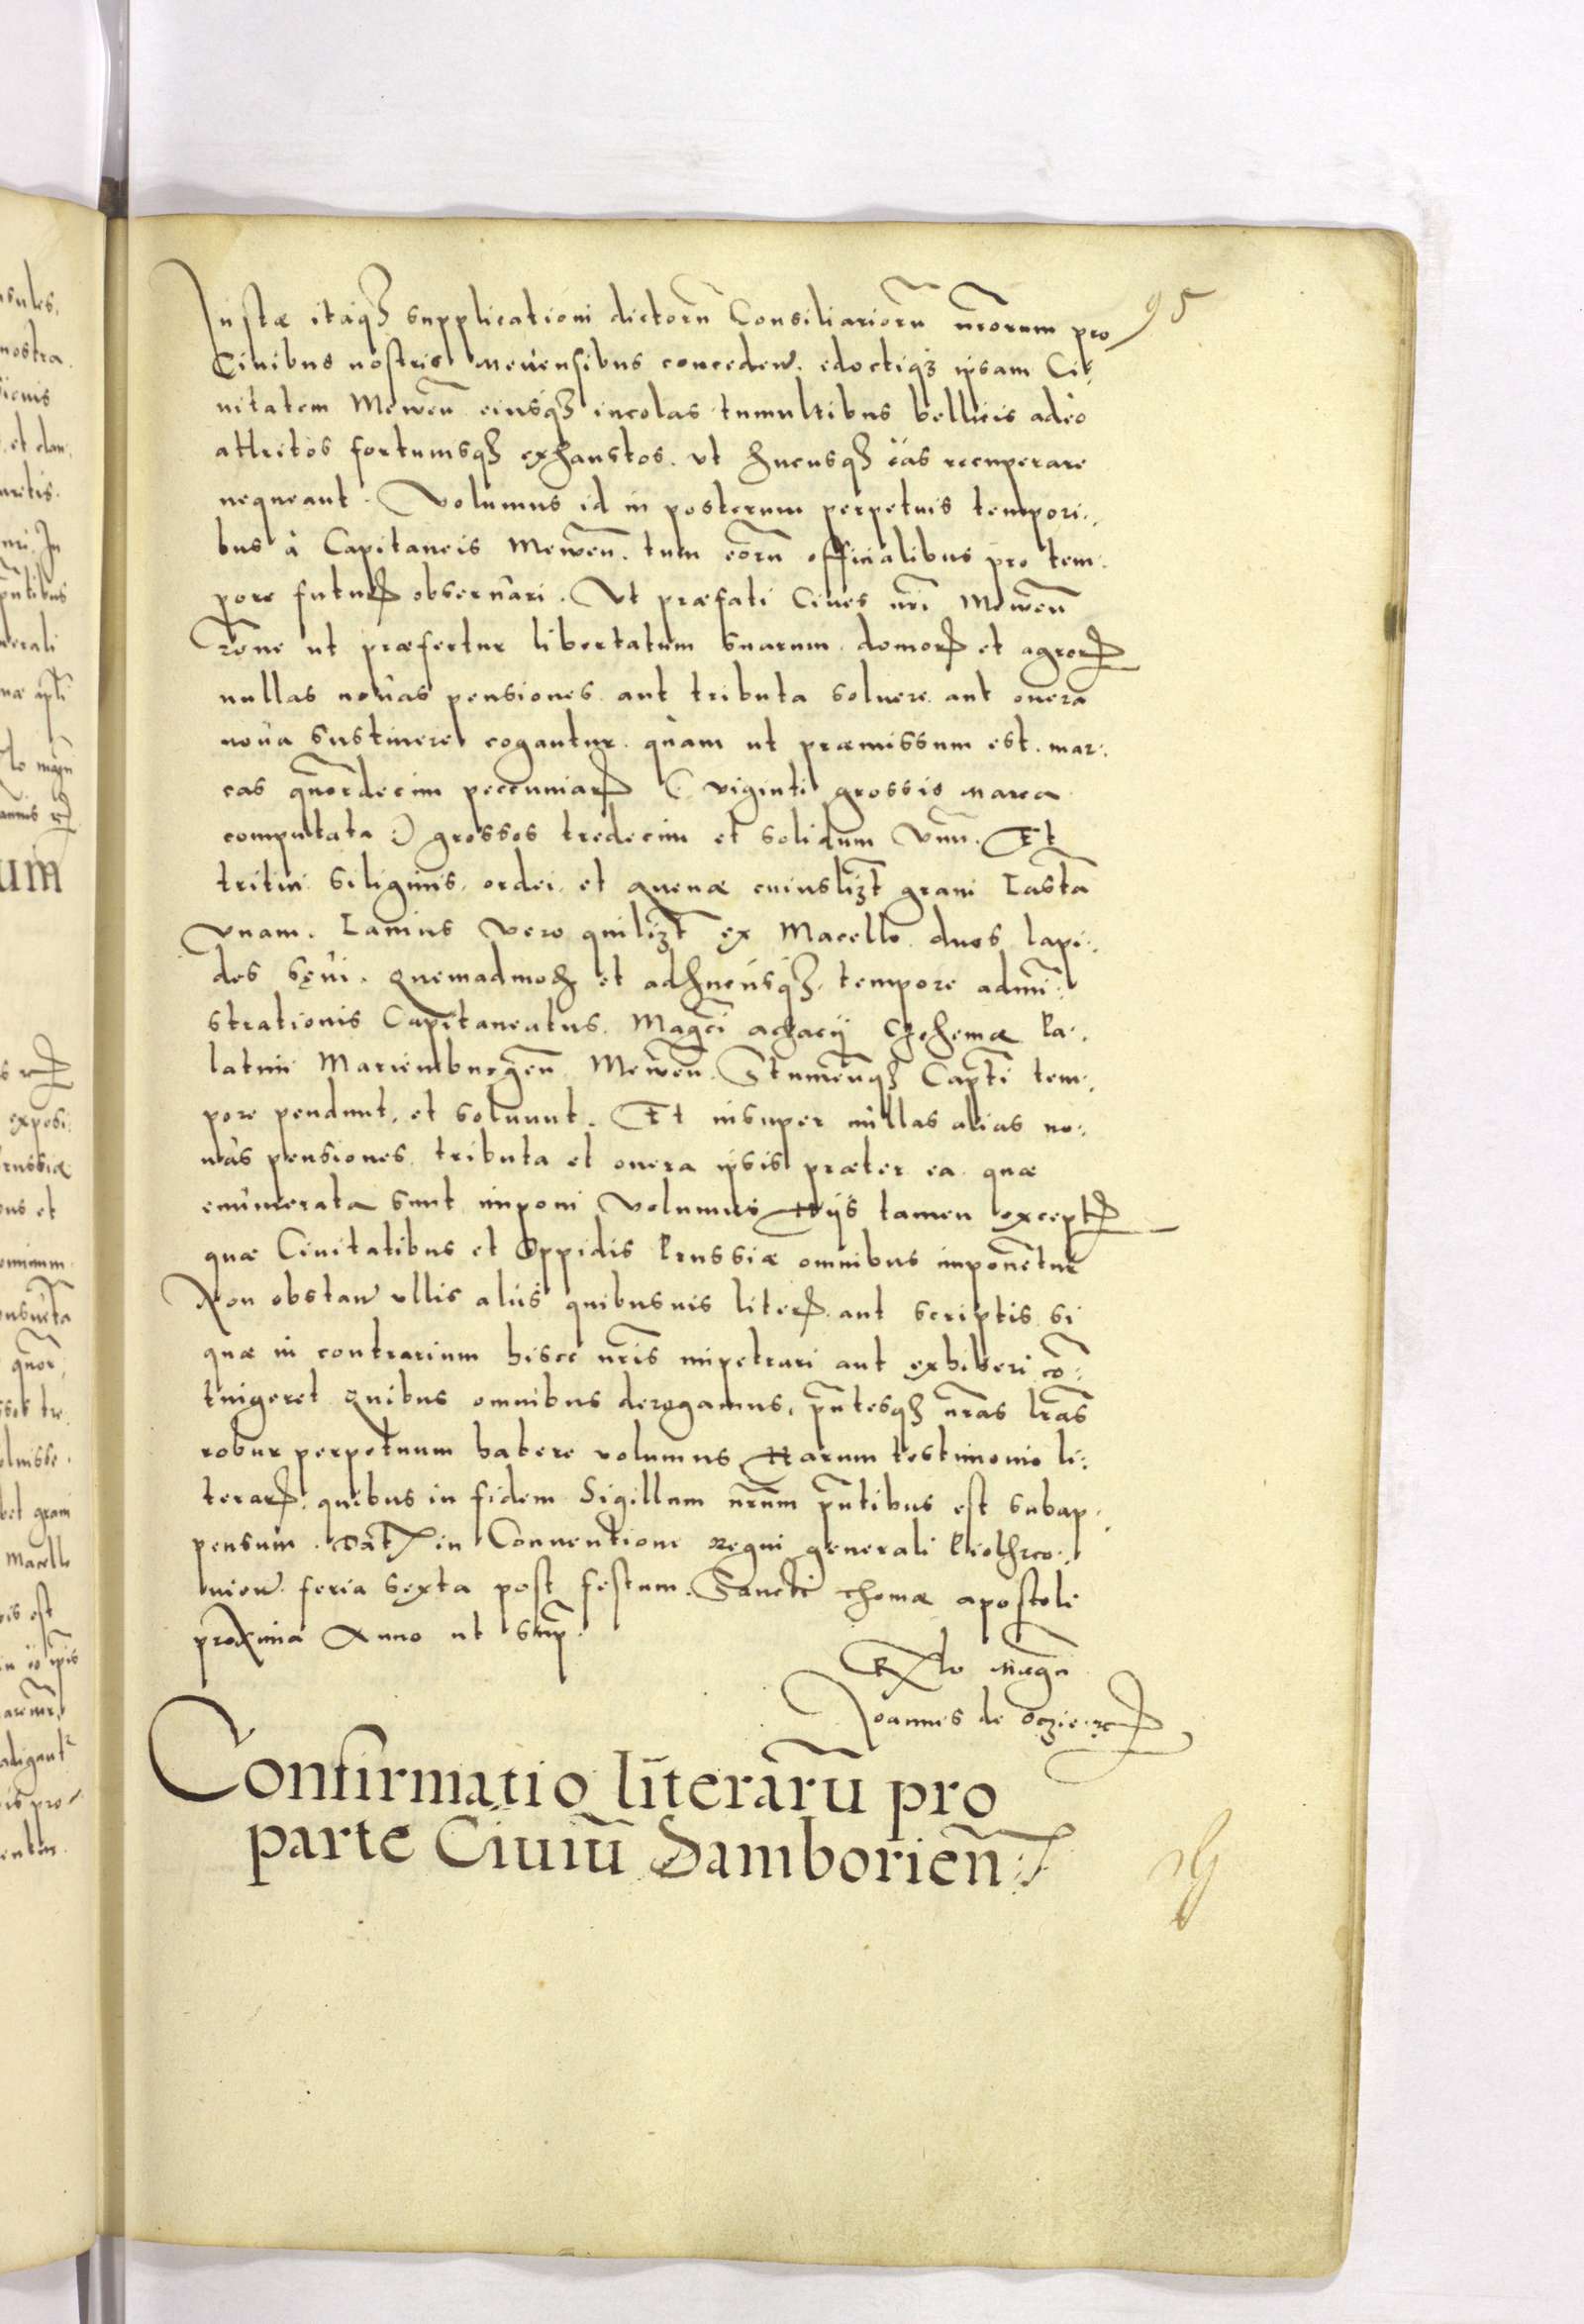 95
Justæ itaqꝫ supplicationi dictorū Consiliariorū nr̄orum pro
Ciuibus nostris Meuensibus conceden̄. edoctiqꝫ ipsam Ci⸗
uitatem Mewen̄ eiusqꝫ incolas tumultibus bellicis adeò
attritos fortunisqꝫ exhaustos. vt hucusqꝫ eas recuperare
nequeant. Volumus id in posterum perpetuis tempori⸗
bus à Capitaneis Mewen̄. tum eorū officialibus pro tem⸗
pore futuꝝ obseruari. Vt præfati Ciues nr̄i Mewen̄
rōne ut præfertur libertatum suarum domoꝝ et agroꝝ
nullas nouas pensiones aut tributa soluere aut onera
noua sustinere cogantur. quàm ut præmissum est. mar⸗
cas qūordecim peccuniaꝝ (: viginti grossis marca
computata :) grossos tredecim et solidum vnū. Et
tritici siliginis. ordei. et auenæ cuiuslibꝫt grani Lastā
vnam. Lanius vero quilibꝫt ex Macello duos lapi⸗
des sęui. Quemadmodū et adhucusqꝫ tempore admī⸗
strationis Capitaneatus. Magci Achacÿ Czehemæ Pa⸗
latini Marienburgen̄ Mewen̄. Stumen̄qꝫ Capti tem⸗
pore pendunt. et soluunt. Et insuper nullas alias no⸗
uas pensiones tributa et onera ipsis præter ea quæ
enumerata sunt imponi volumus Hÿs tamen exceptꝭ
quæ Ciuitatibus et Oppidis Prussiæ omnibus imponentur
Non obstan̄ ullis alijs quibusuis literꝭ. aut scriptis si
quæ in contrarium hisce nr̄is impetrari aut exhiberi cō⸗
tingeret Quibus omnibus derogamus, pn̄tesqꝫ nr̄as lr̄as
robur perpetuum habere volumus Harum testimonio li⸗
teraꝝ. quibus in fidem Sigillum nr̄um pn̄tibus est subap⸗
pensum. Dat in Conuentione Regni generali Piothrco⸗
uien̄. feria sexta post festum Sancti Thomæ apostoli
proxima Anno ut sup̄.
Rlo Magci
Joannis de Oczie ꝛc
Confirmatio literarū pro
parte Ciuiū Samborien̄